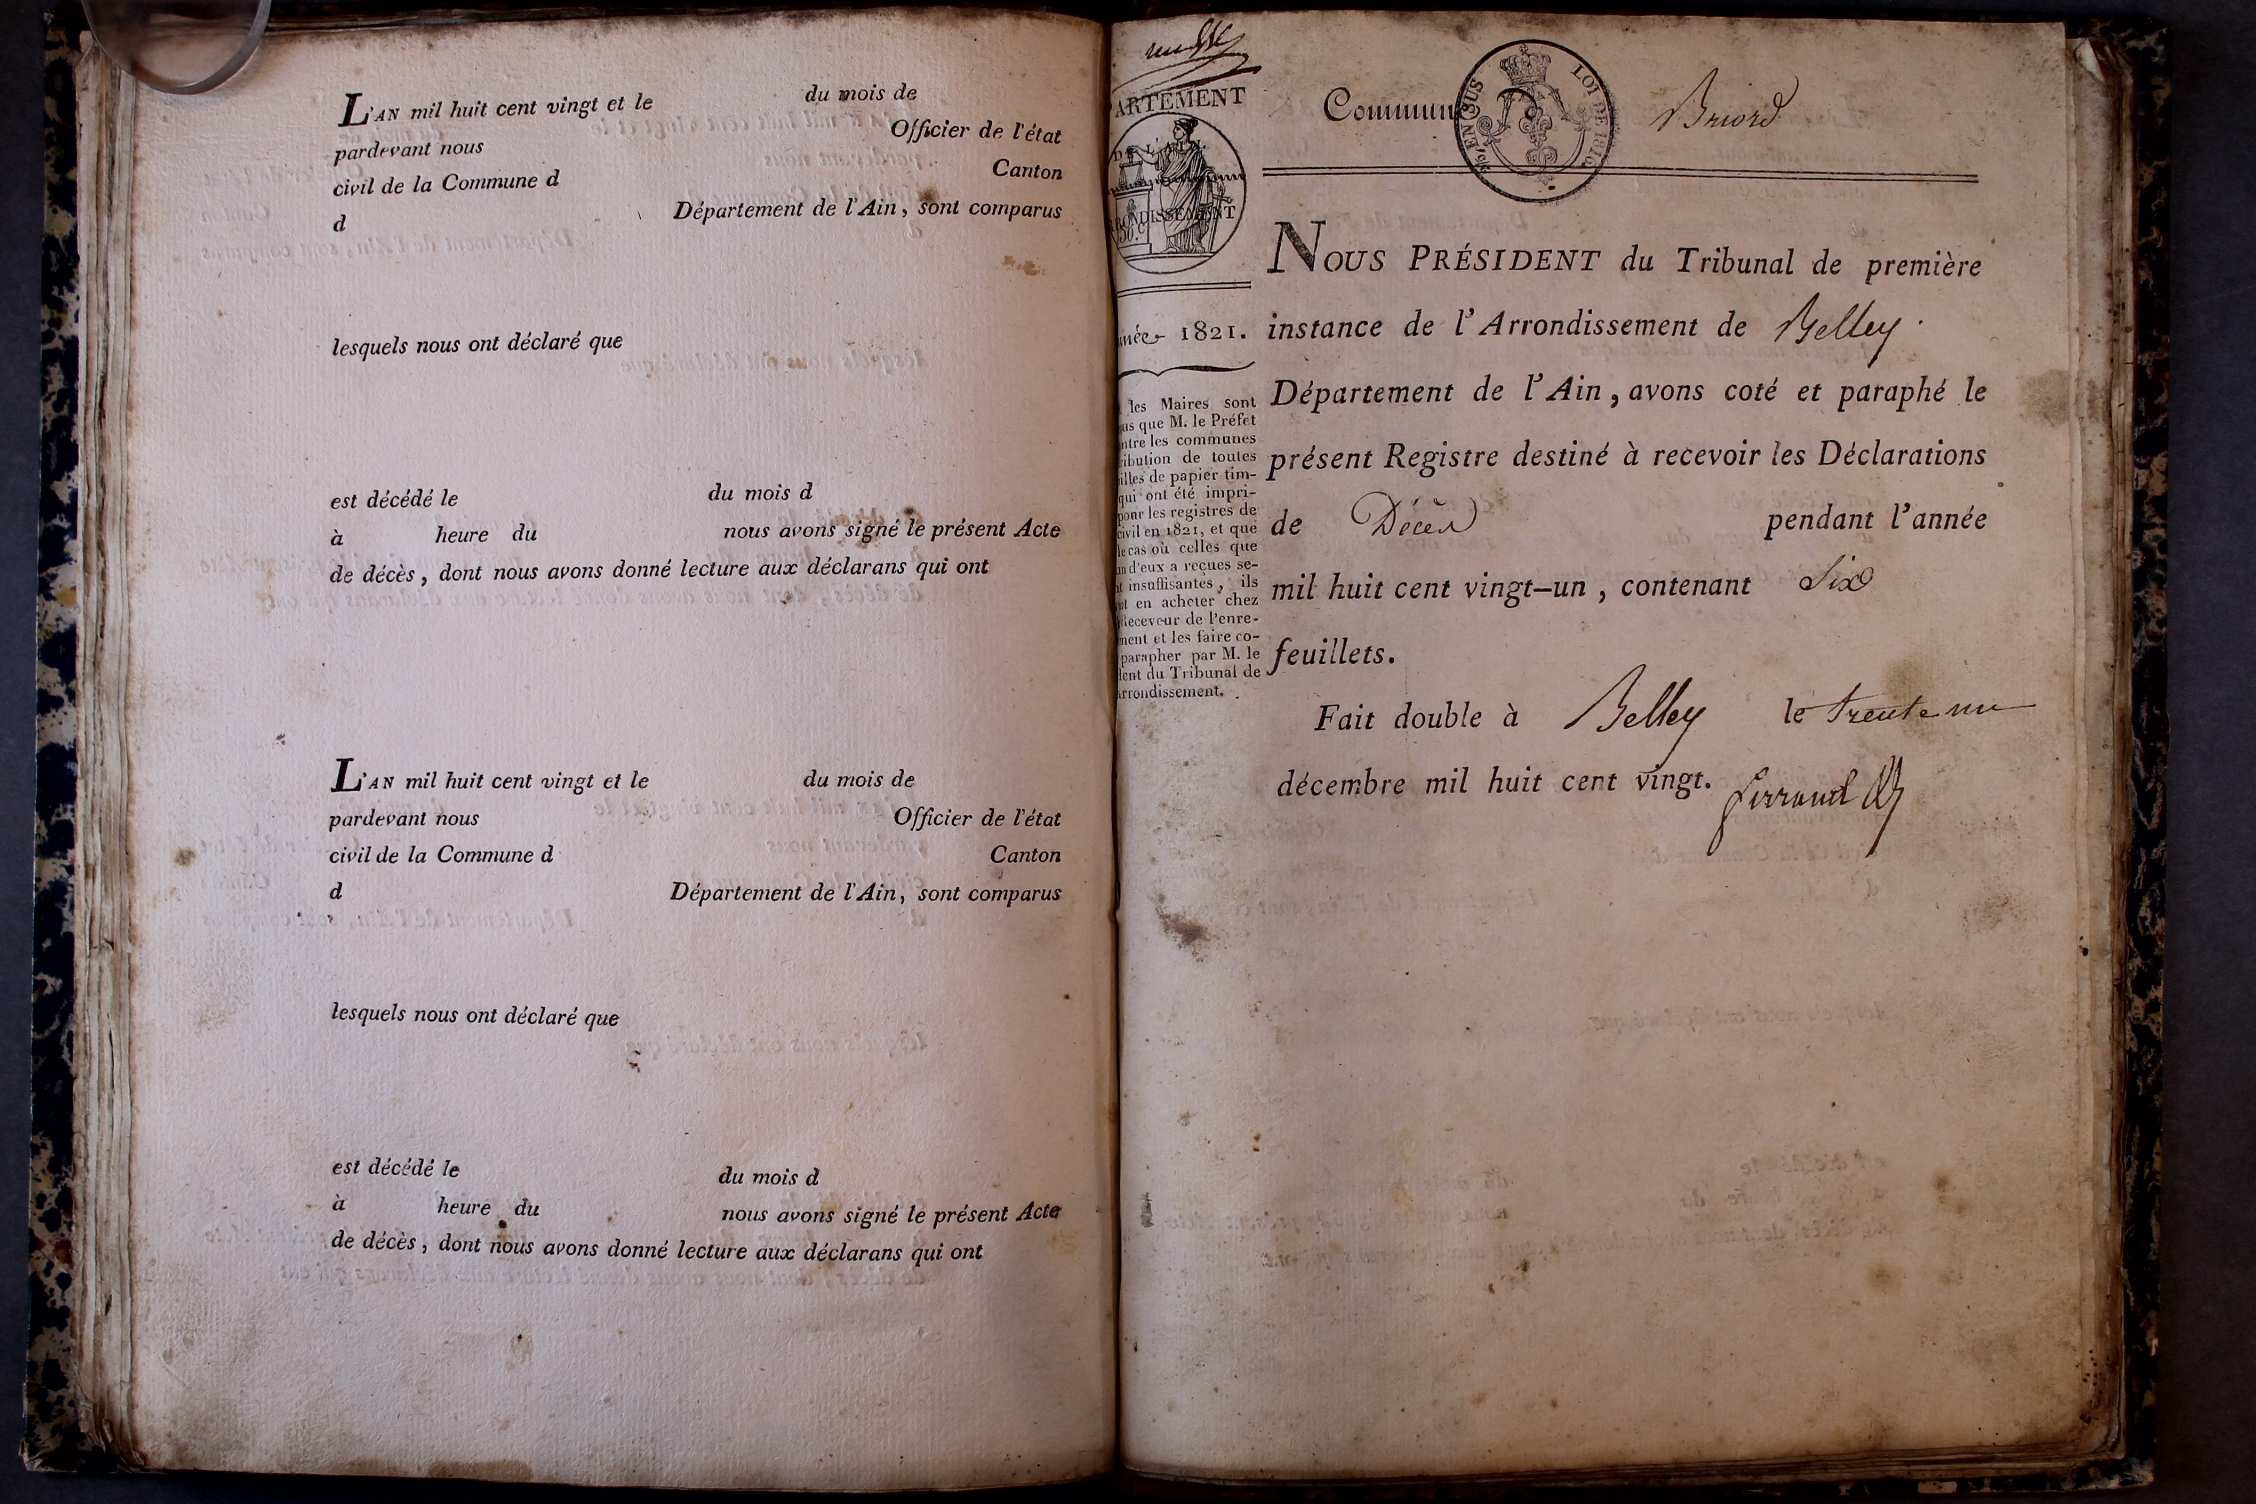 L'AN mil huit cent vingt et le du mois de
pardevant nous Officier de l'état
civil de la Commune d Canton
d Département de l'Ain, sont comparus
lesquels nous ont déclaré que
est décédé le du mois d
à heure du nous avons signé le présent Acte
de décès, dont nous avons donné lecture aux déclarans qui ont
L'AN mil huit cent vingt et le du mois de
pardevant nous Officier de l'état
civil de la Commune d Canton
d Département de l'Ain, sont comparus
lesquels nous ont déclaré que
est décédé le du mois d
à heure du nous avons signé le présent Acte
de décès, dont nous avons donné lecture aux déclarans qui ont
ARTEMENT
DE L'AIN
née 1821.
les Maires sont
que M. le Préfet
ntre les communes
ribution de toutes
illes de papier tim-
qui ont été impri-
pour les registres de
civil en 1821, et que
le cas où celles que
un d'eux a reçues se-
nt insuffisantes, ils
nt en acheter chez
Receveur de l'enre-
ment et les faire co-
parapher par M. le
dent du Tribunal de
rrondissement.
Commun Briord
EN SUS LOI DE 1816
NOUS PRÉSIDENT du Tribunal de première
instance de l'Arrondissement de Belley.
Département de l'Ain, avons coté et paraphé le
présent Registre destiné à recevoir les Déclarations
de Décès pendant l'année
mil huit cent vingt-un, contenant Six
feuillets.
Fait double à Belley le trente un
décembre mil huit cent vingt.